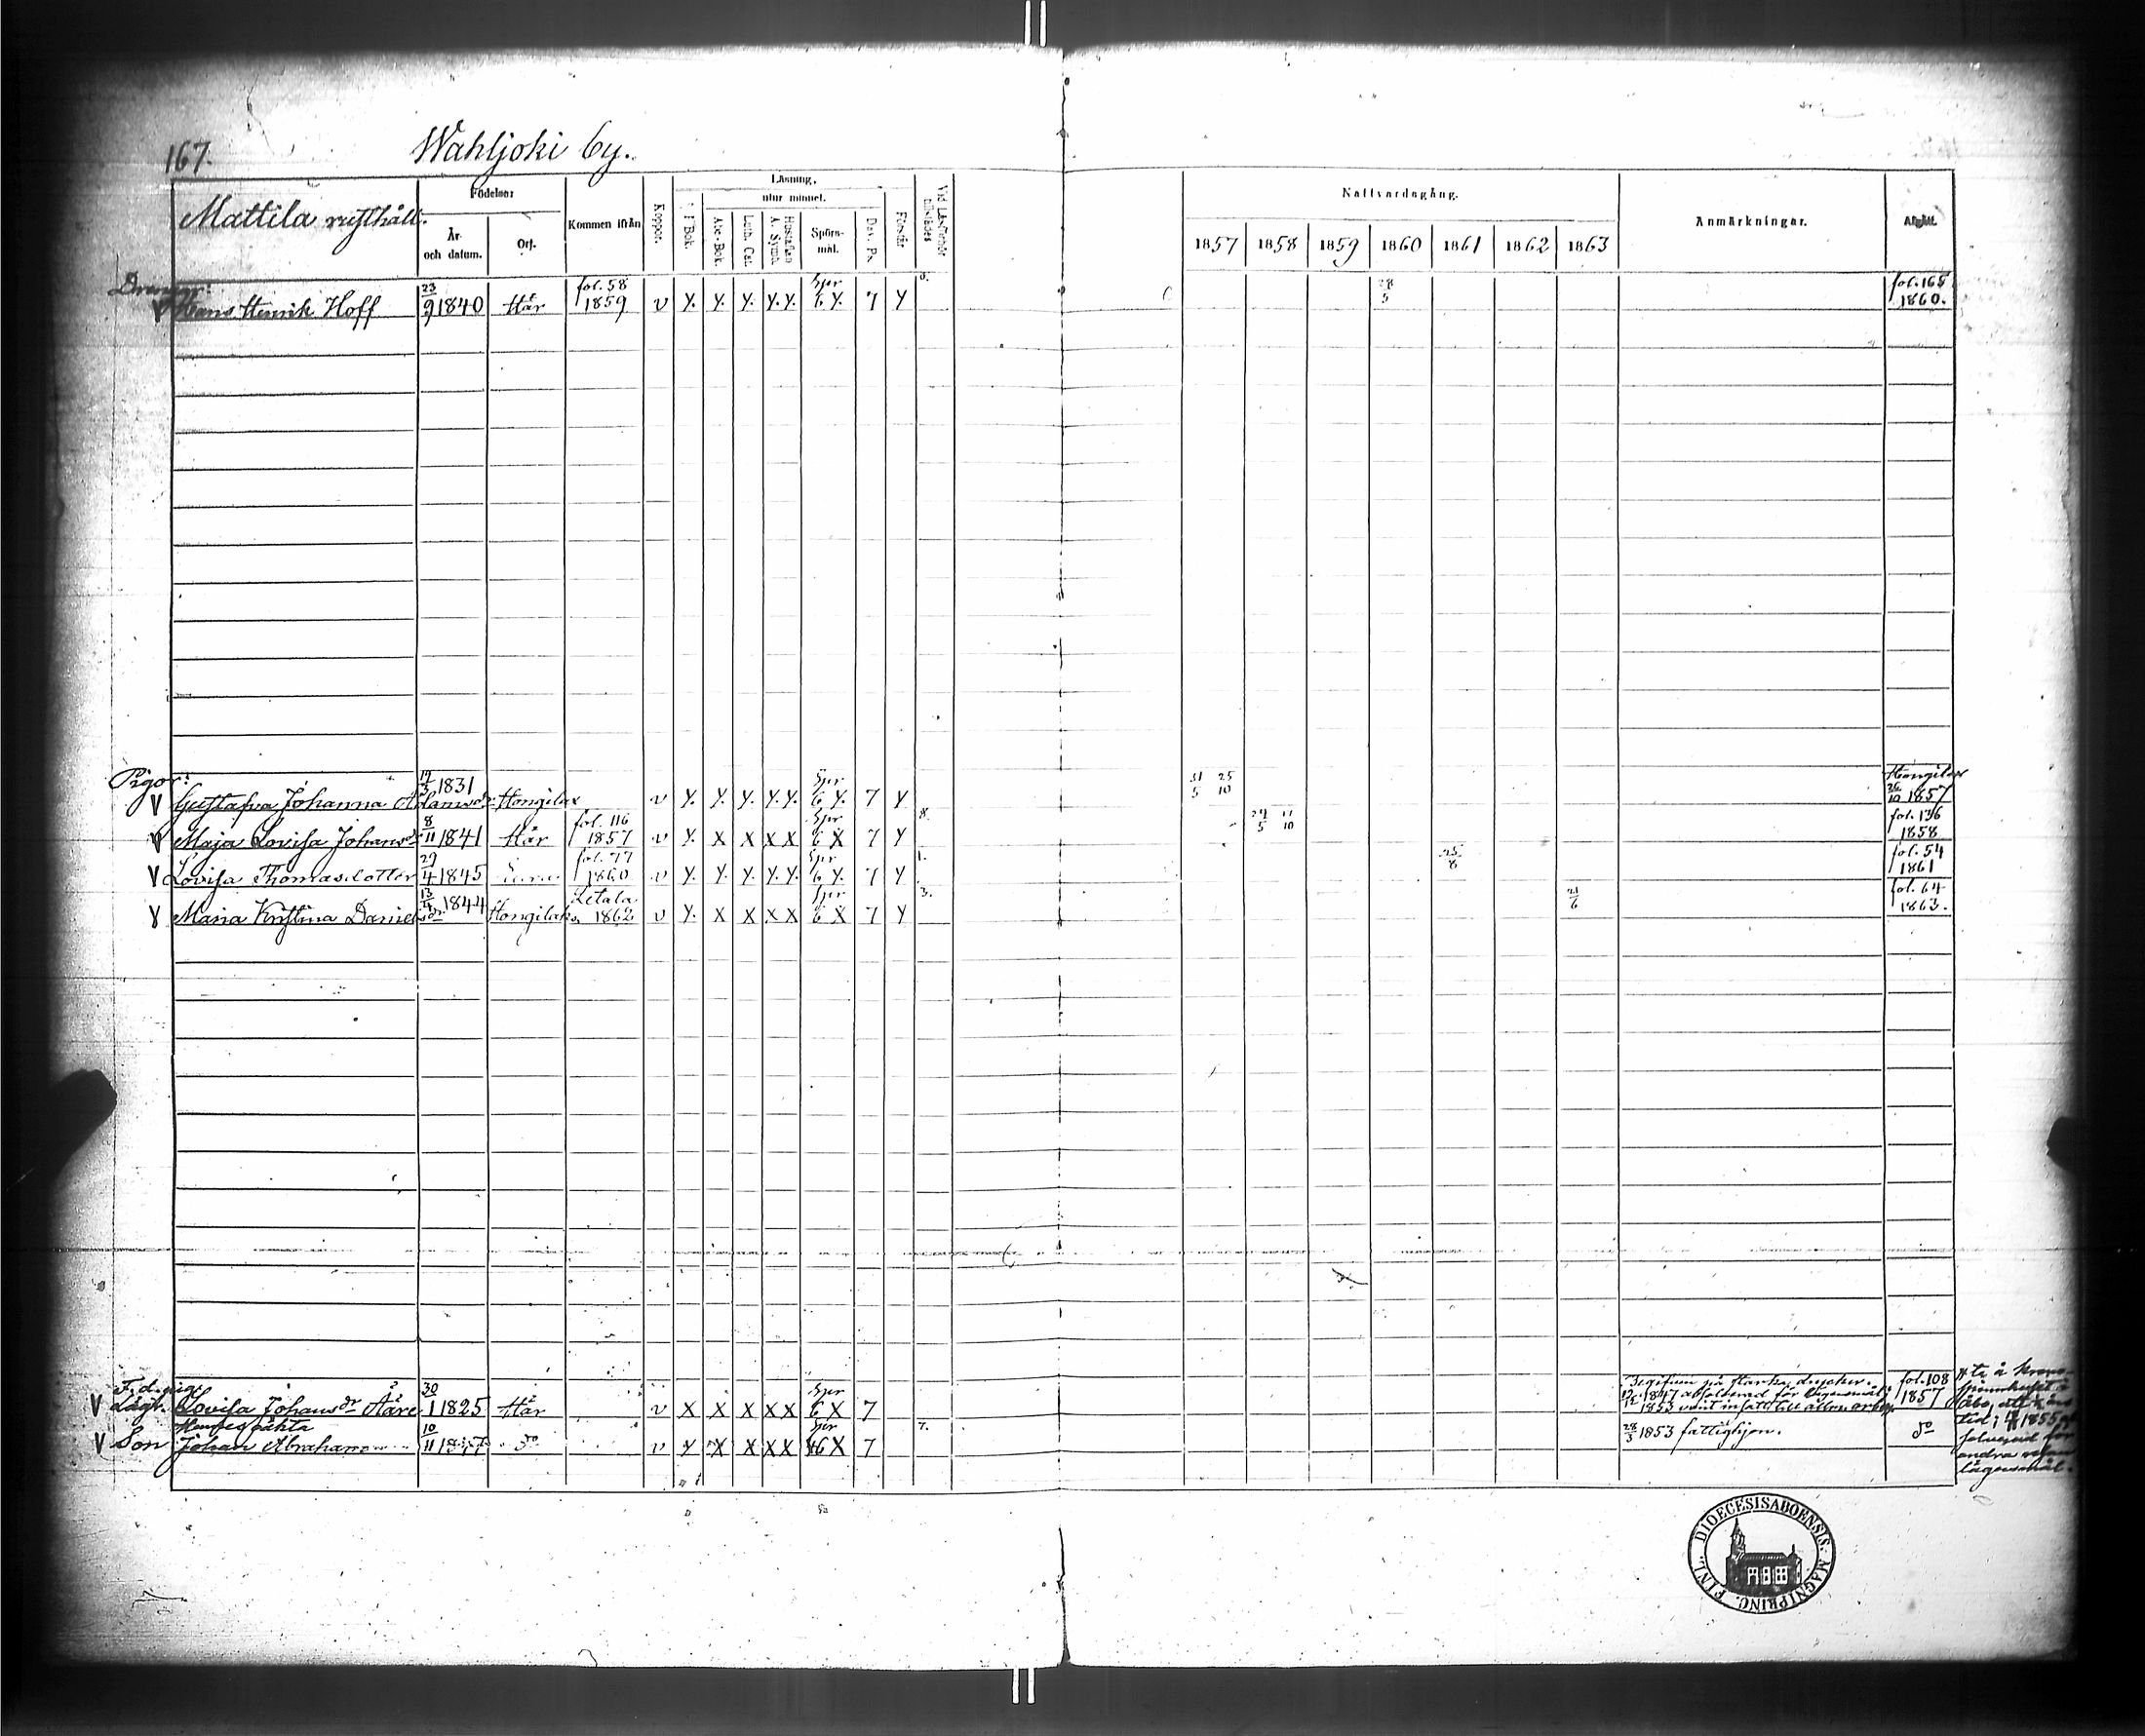 167.
Wahljoki by.
Mattila rusthåll.
Födelse:
År och datum.
Ort.
Kommen ifrån
Koppor.
Läsning.
utur minnet.
I Bok.
Abc-Bok.
Luth. Cat.
Hustaflan A. Symb.
Spörs-mål.
Dav. Ps.
Förstår
Vid Läsförhör tillstädes
Nattvardsgång.
1857 1858 1859 1860 1861 1862 1863
Anmärkningar.
Afgått.
Drengar:
V Hans Henrik Hoff 23/9 1840 Här fol. 58 1859 v Y. Y. Y. Y. Y. Spr 6 Y. 7 Y fol. 165 1860.
Pigor:
V Gustafva Johanna Adamsdr 1831 Hongilax v Y. Y. Y. Y. Y. Spr 6 Y. 7 Y 31/5 25/10 Hongilax 26/10 1857
V Maja Lovisa Johansdr 8/11 1841 Här fol. 116 1857 v Y. X X X X Spr 6 X 7 Y 8. fol. 136 1858
V Lovisa Thomasdotter 29/4 1845 Eura fol. 77 1860 v Y. Y. Y. Y. Y. Spr 6 Y. 7 Y 1. 25/8 fol. 54 1861
V Maria Kristina Danielsdr 13/4 1844 Hongilaks Letala 1862 v Y. X X X X Spr 6 X 7 Y 3. 21/6 fol. 64 1863.
V Lägt. Lovisa Johansdr Åäre 30/1 1825 Här v X X X X X Spr 6 X 7 fol. 108 1857
Begifven på starka drycker.
1847 absolverad för lägersmål
1853
V Son Johan Abraham 10/11 1847 do v Y X X X X Spr 6 X 7 7. 28/3 1853 fattighjon. do
Åbo,
1855
andra
lägersmål.
DIOECESIS ABOENSIS. MAGNI PRINC. FINL.